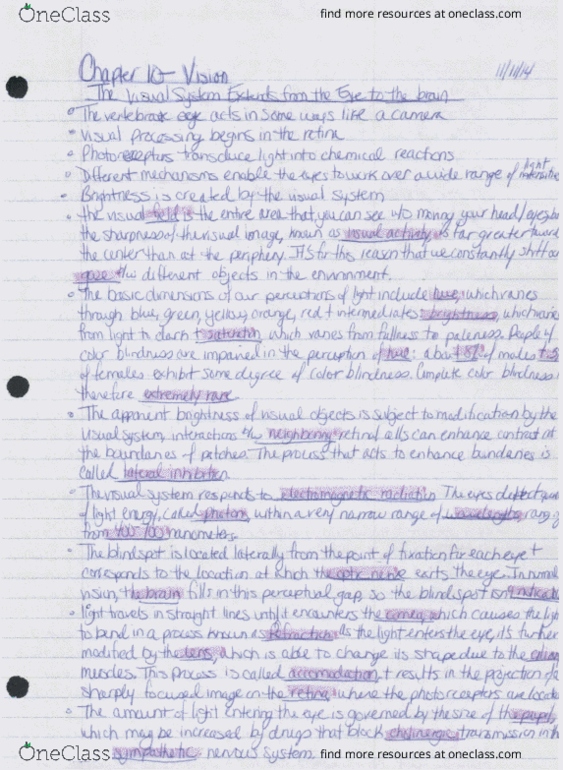 OneClass find more resources at oneclass.com
Chapter 10- Vision 11/11/14
The Visual System Extends from the Eye to the brain
The vertebrate eye acts in some ways like a camera
Visual processing begins in the retina
Photoreceptors transduce light into chemical reactions
Different mechanisms enable the eyes to work over a wide range of light
Brightness is created by the visual system
The visual field is the entire area that you can see w/o moving your head/
the sharpness of the visual image, known as visual activity, is far greater
the center than at the periphery. It's for this reason that we constantly shift our
gaze different objects in the environment.
The basic dimensions of our perceptions of light include hue, which varies
through blue, green, yellow, orange, red + intermediates brightness, which varies
from light to dark + saturation which varies from fullness to paleness. People
color blindness are impaired in the perception of hue: about 8% of males
of females exhibit some degree of color blindness. Complete color blindness
therefore extremely rare
The apparent brightness of visual objects is subject to modification by the
visual system, interactions neighboring retinal cells can enhance contrast at
the boundaries of patches. The process that acts to enhance boundaries is
called lateral inhibition.
The visual system responds to electromagnetic radiation. The eyes detect
of light energy, called photons, within a very narrow range of wavelengths,
from 400-700 nanometers.
The blindspot is located laterally from the point of fixation for each eye +
corresponds to the location at which the optic nerve exits the eye. In normal
vision, the brain fills in this perceptual gap so the blindspot isn't
light travels in straight lines until it encounters the cornea, which causes the
to bend in a process known as refraction. As the light enters the eye, it's further
modified by the lens, which is able to change its shape due to the
muscles. This process is called accomodation, it results in the projection of
sharply focused image on the retina, where the photoreceptors are
The amount of light entering the eye is governed by the size of the pupil,
which may be increased by drugs that block cholinergic transmission in
sympathetic nervous system.
OneClass find more resources at oneclass.com